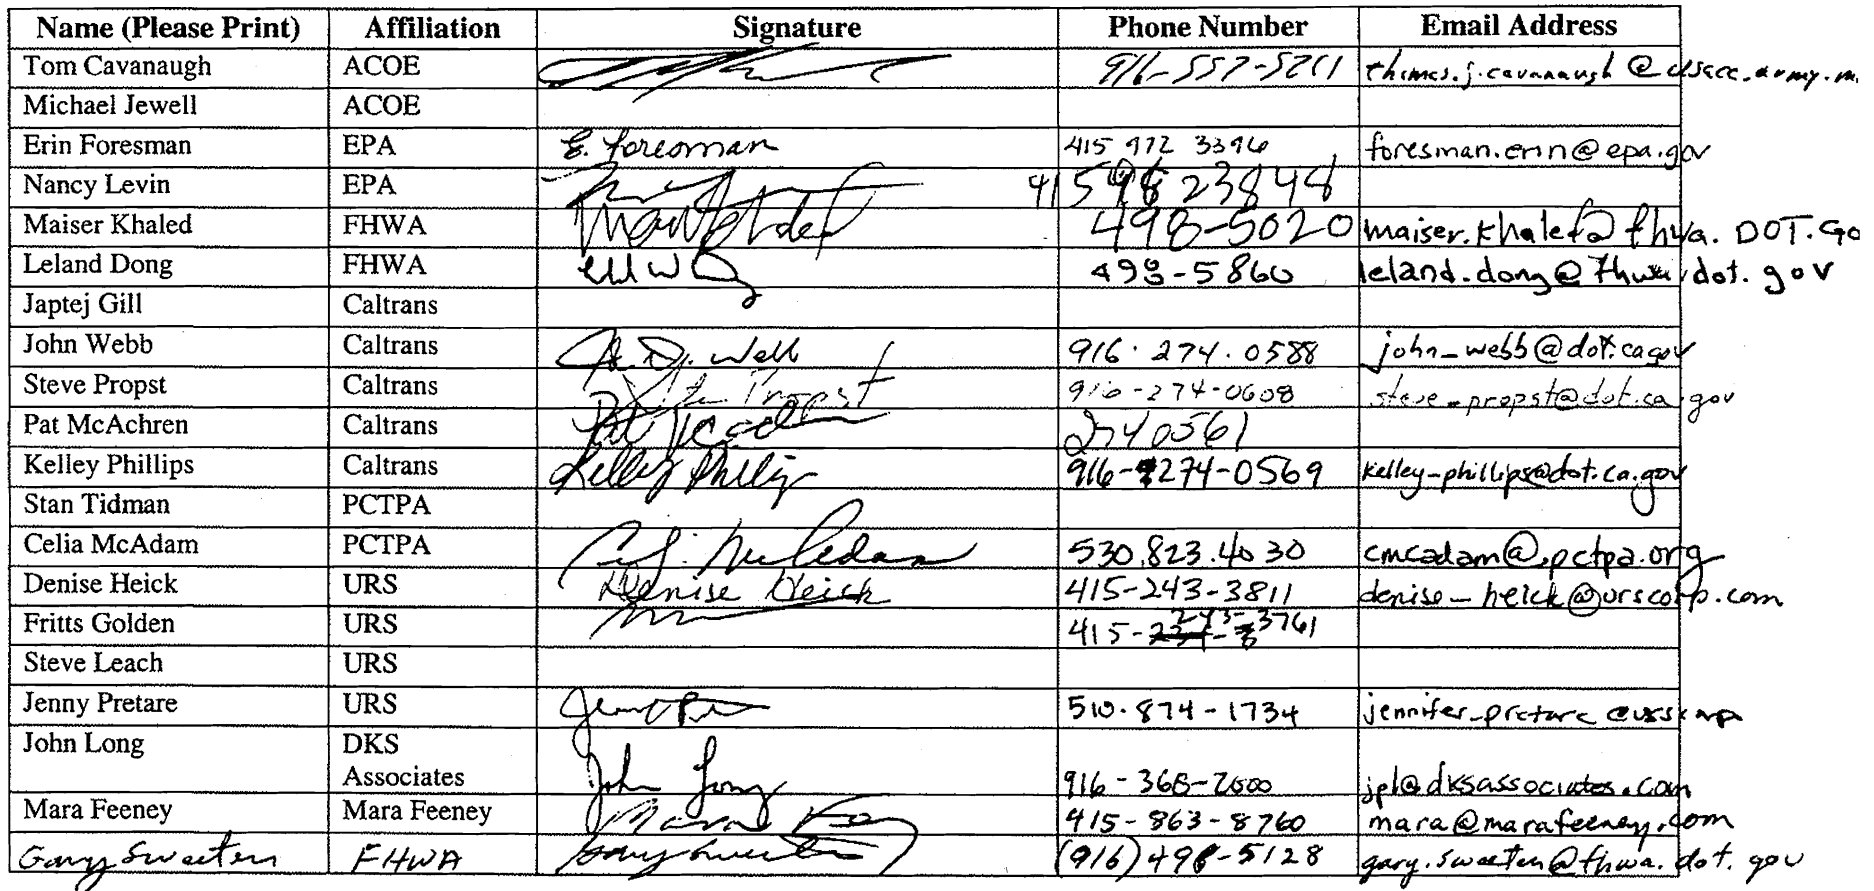 Name (Please Print) Affiliation Signature Phone Number Email Address
Tom Cavanaugh ACOE 916-557-5261 thomas.j.cavanaugh@usace.army.m
Michael Jewell ACOE
Erin Foresman EPA E. Foresman 415 972 3396 foresman.erin@epa.gov
Nancy Levin EPA 415 9723848
Maiser Khaled FHWA 498-5020 maiser.khaled@fhwa.DOT.Go
Leland Dong FHWA 498-5860 leland.dong@fhwa.dot.gov
Japtej Gill Caltrans
John Webb Caltrans 916.274.0588 john_webb@dot.ca.gov
Steve Propst Caltrans Steve Propst 916-274-0608 steve_propst@dot.ca.gov
Pat McAchren Caltrans 2740561
Kelley Phillips Caltrans Kelley Phillips 916-274-0569 kelley_phillips@dot.ca.gov
Stan Tidman PCTPA
Celia McAdam PCTPA 530.823.4030 cmcadam@pctpa.org
Denise Heick URS Denise Heick 415-243-3811 denise_heick@urscorp.com
Fritts Golden URS 415-243-3761
Steve Leach URS
Jenny Pretare URS 510.874-1734 jennifer_pretare@urscorp
John Long DKS
Associates John Long 916-368-2000 jpl@dksassociates.com
Mara Feeney Mara Feeney 415-863-8760 mara@marafeeney.com
Gary Sweeten FHWA Gary Sweeten (916)498-5128 gary.sweeten@fhwa.dot.gov